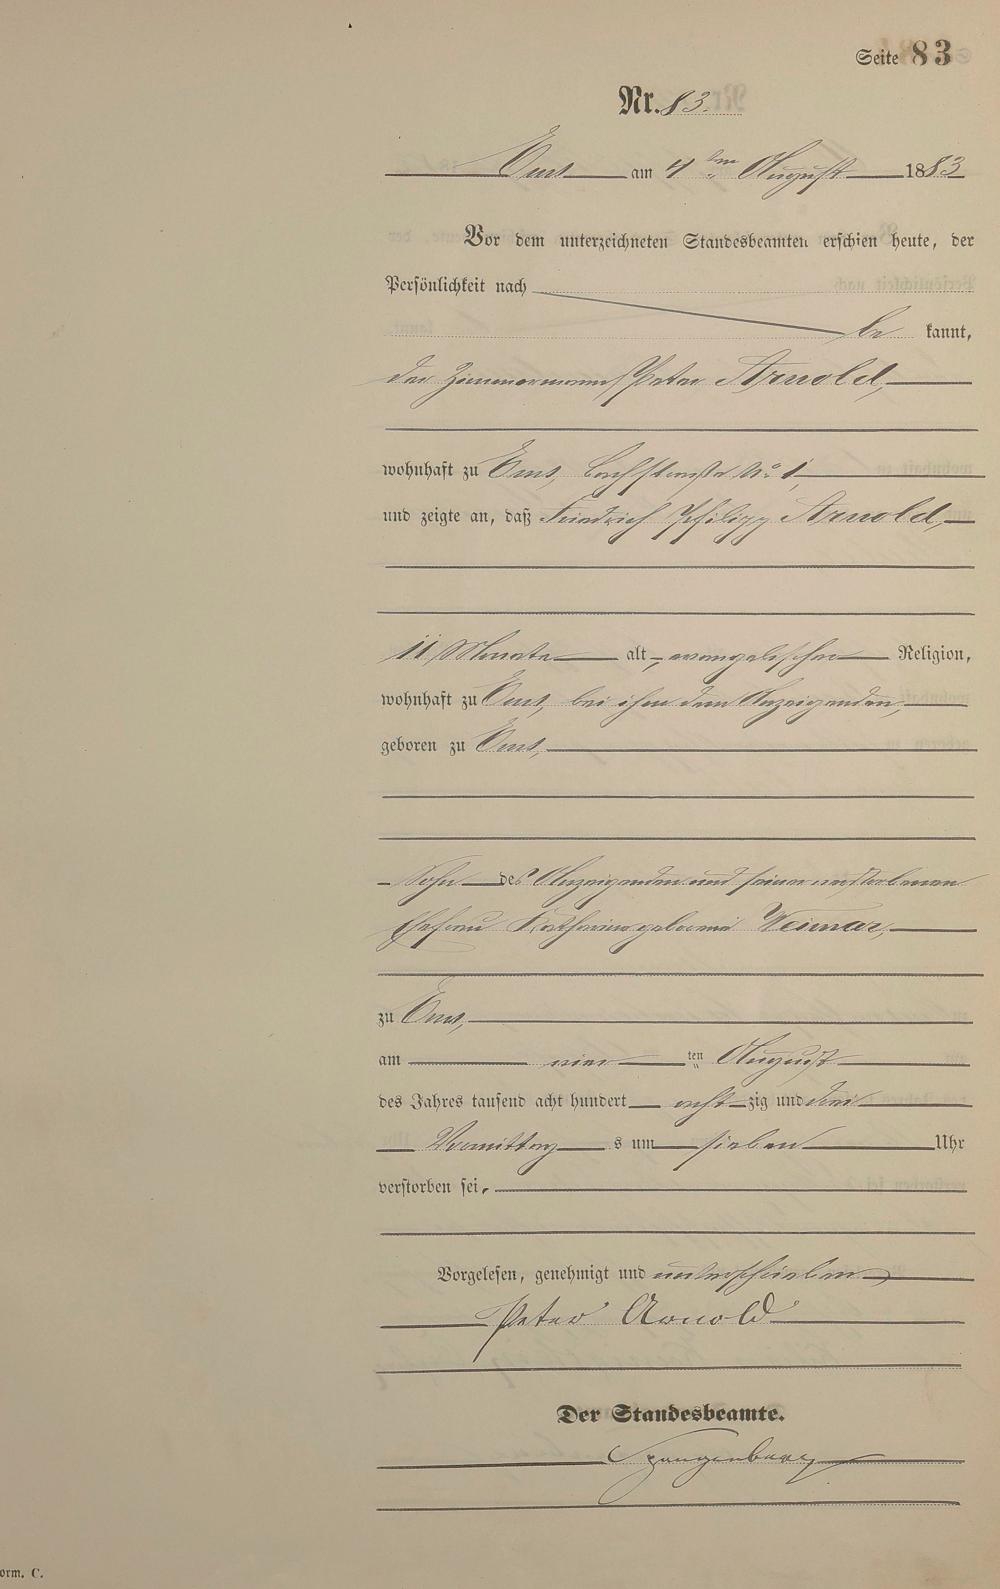 Seite 83
Nr. 83.
Ems am 4 ten August 1883
Vor dem unterzeichneten Standesbeamten erschien heute, der
Persönlichkeit nach
be kannt,
der Zimmermann Peter Arnold,
wohnhaft zu Ems, Bachstraße No 1,
und zeigte an, daß Friedrich Philipp Arnold,
11 Monate alt, evangelischer Religion,
wohnhaft zu Ems, bei ihm dem Anzeigenden,
geboren zu Ems,
Sohn des Anzeigenden und seiner verstorbenen
Ehefrau Katharina geborene Weimar,
zu Ems,
am vier ten August
des Jahres tausend acht hundert acht zig und drei
Vormittag s um sieben Uhr
verstorben sei.
Vorgelesen, genehmigt und unterschrieben
Peter Arnold
Der Standesbeamte.
Spangenberg
orm. C.